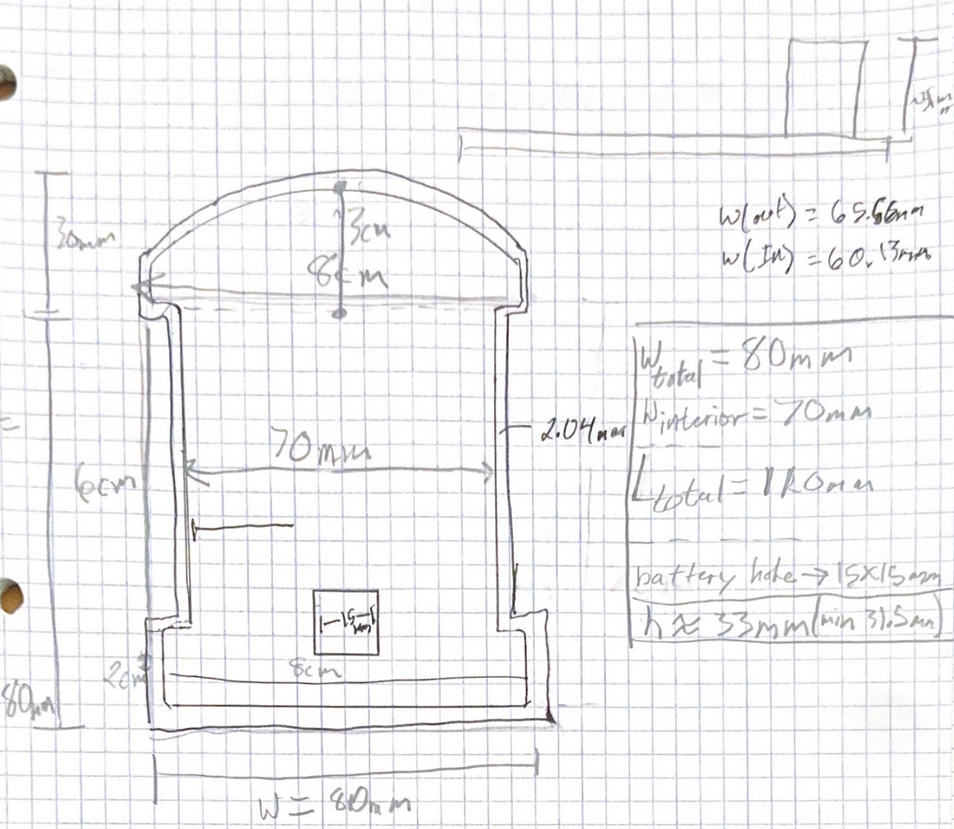 30mm
3cm
8cm
W(out) = 65.66mm
W(In) = 60.13mm
W total = 80mm
W interior = 70mm
2.04mm
70mm
6cm
L total = 110mm
battery hole → 15x15mm
h ≈ 33mm (min 31.5mm)
15mm
8cm
2cm
80mm
W = 80mm